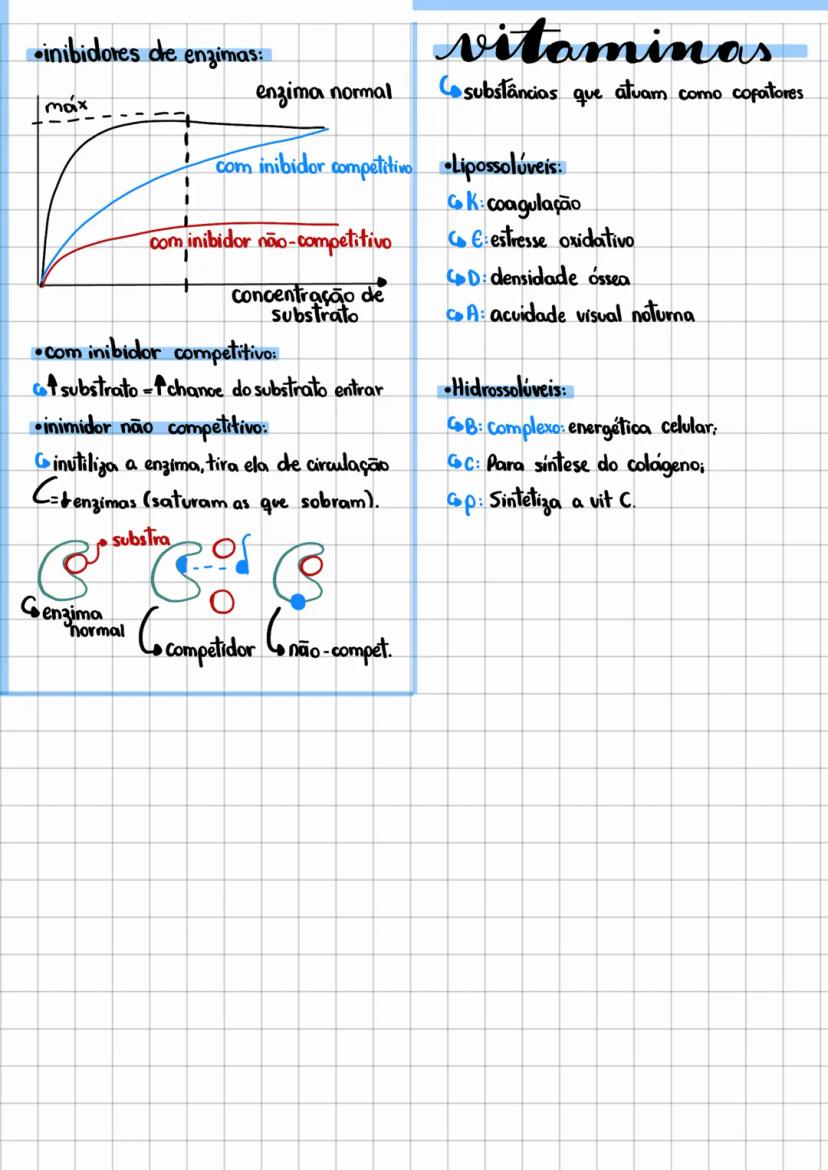 •inibidores de enzimas:
máx
enzima normal
com inibidor competitivo
com inibidor não-competitivo
concentração de
substrato
•com inibidor competitivo:
↑substrato = ↑chance do substrato entrar
•inimidor não competitivo:
inutiliza a enzima, tira ela de circulação
=↓enzimas (saturam as que sobram).
substra
enzima
normal
competidor
não-compet.
vitaminas
substâncias que atuam como cofatores
•Lipossolúveis:
K: coagulação
E: estresse oxidativo
D: densidade óssea
A: acuidade visual noturna
•Hidrossolúveis:
B: complexo: energética celular;
C: Para síntese do colágeno;
p: Sintetiza a vit C.